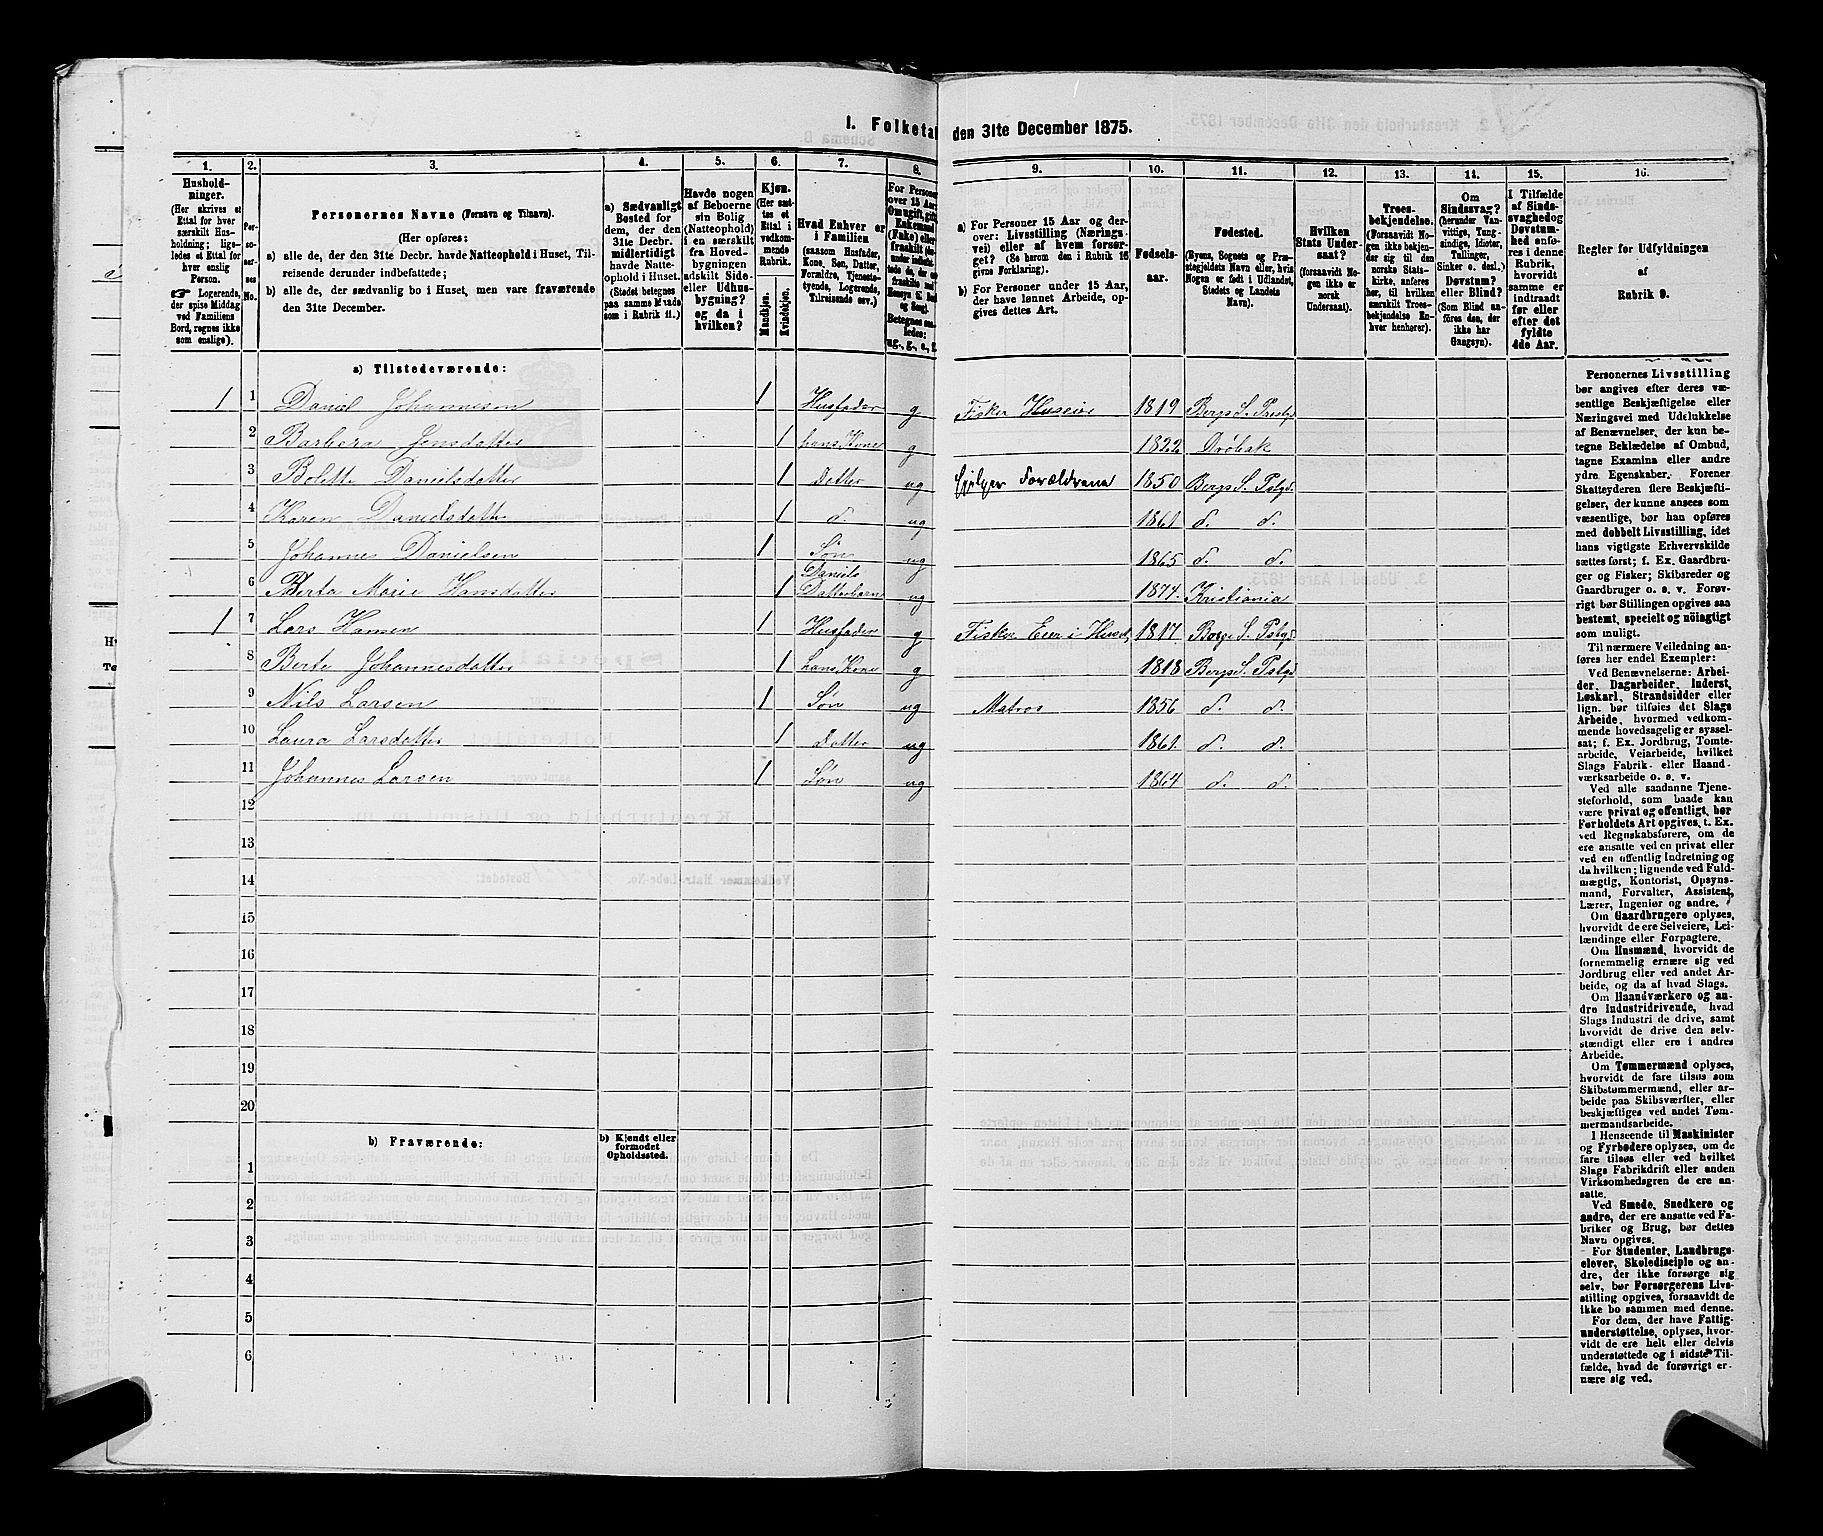 I. Folketal den 31te December 1875.
1. 2. 3. 4. 5. 6. 7. 8. 9. 10. 11. 12. 13. 14. 15. 16.
Hushold-
ninger.
(Her skrives et
Ettal for hver
særskilt Hus-
holdning; lige-
ledes et Ettal for
hver enslig
Person.
☞ Logerende,
der spise Middag
ved Familiens
Bord, regnes ikke
som enslige).
Per-
so-
ner-
nes
No.
Personernes Navne (Fornavn og Tilnavn).
(Her opføres:
a) alle de, der den 31te Decbr. havde Natteophold i Huset, Til-
reisende derunder indbefattede;
b) alle de, der sædvanlig bo i Huset, men vare fraværende
den 31te December.
a) Sædvanligt
Bosted for
dem, der den
31te Decbr.
midlertidigt
havde Natte-
ophold i Huset.
(Stedet betegnes
paa samme Maade
som i Rubrik 11.)
Havde nogen
af Beboerne
sin Bolig
(Natteophold)
i en særskilt
fra Hoved-
bygningen
adskilt Side-
eller Udhus-
bygning?
og da i
hvilken?
Kjøn.
(Her sæt-
tes et
Ettal i
vedkom-
mende
Rubrik.
Mandkjøn.
Kvindekjøn.
Hvad Enhver er
i Familien
(saasom Husfader,
Kone, Søn, Datter,
Forældre, Tjeneste-
tyende, Logerende,
Tilreisende osv.)
For Personer
over 15 Aar:
Om ugift, gift,
Enkemand
(Enke) eller
fraskilt
Betegnes saa-
ledes:
ug., g., e., f.
a) For Personer 15 Aar og der-
over: Livsstilling (Nærings-
vei) eller af hvem forsør-
get? (Se herom den i Rubrik 16
givne Forklaring).
b) For Personer under 15 Aar,
der have lønnet Arbeide, op-
gives dettes Art.
Fødsels-
aar.
Fødested.
(Byens, Sognets og Præ-
stegjeldets Navn eller, hvis
Nogen er født i Udlandet,
Stedets og Landets
Navn).
Hvilken
Stats Under-
saat?
(forsaavidt No-
gen ikke er
norsk
Undersaat).
Troes-
bekjendelse.
(Forsaavidt No-
gen ikke bekjen-
der sig til den
norske Stats-
kirke, anføres
her, til hvilken
særskilt Troes-
bekjendelse En-
hver henhører).
Om
Sindssvag?
(herunder Van-
vittige, Tung-
sindige, Idioter,
Tullinger,
Sinker o. desl.)
Døvstum?
eller Blind?
(Som Blind an-
føres den, der
ikke har
Gangsyn).
I Tilfælde
af Sinds-
svaghed og
Døvstum-
hed anfø-
res i denne
Rubrik,
hvorvidt
samme er
indtraadt
før eller
efter det
fyldte
4de Aar.
Regler for Udfyldningen
af
Rubrik 9.
a) Tilstedeværende:
1 1 Daniel Johannesen 1 Husfader g Fisker Huseier 1819 Bergs S. Prestgd
2 Barbera Jensdatter 1 hans Kone g 1822 Drøbak
3 Bolette Danielsdatter 1 Datter ug hjelper Forældrene 1850 Bergs S. Pstgd.
4 Karen Danielsdatter 1 d. ug 1861 d. d.
5 Johannes Danielsen 1 Søn ug 1865 d. d.
6 Berta Marie Hansdatter 1 Daniels Datterbarn ug 1874. Kristiania
1 7 Lars Hansen 1 Husfader g Fisker Eier i Huset, 1817 Bergs S. Pstgd
8 Berte Johannesdatter 1 hans Kone g 1818 Bergs S. Pstgd
9 Nils Larsen 1 Søn ug Matros 1856 d. d.
10 Laura Larsdatter 1 Datter ug 1861. d. d.
11 Johannes Larsen 1 Søn ug 1864 d. d.
12
13
14
15
16
17
18
19
20
b) Fraværende: b) Kjendt eller
formodet
Opholdssted.
1
2
3
4
5
6
Personernes Livsstilling
bør angives efter deres væ-
sentlige Beskjæftigelse eller
Næringsvei med Udelukkelse
af Benævnelser, der kun be-
tegne Beklædelse af Ombud,
tagne Examina eller andre
ydre Egenskaber. Forener
Skatteyderen flere Beskjæfti-
gelser, der kunne ansees som
væsentlige, bør han opføres
med dobbelt Livsstilling, idet
hans vigtigste Erhvervskilde
sættes først; f. Ex. Gaardbru-
ger og Fisker; Skibsreder og
Gaardbruger o. s. v. Forøv-
rigt bør Stillingen opgives saa
bestemt, specielt og nøiagtigt
som muligt.
Til nærmere Veiledning an-
føres her endel Exempler:
Ved Benævnelserne: Arbei-
der, Dagarbeider, Inderst,
Løskarl, Strandsidder eller
lign. bør tilføies det Slags
Arbeide, hvormed vedkom-
mende hovedsagelig er syssel-
sat; f. Ex. Jordbrug, Tomte-
arbeide, Veiarbeide, hvilket
Slags Fabrik- eller Haand-
værksarbeide o. s. v.
Ved alle saadanne Tjene-
steforhold, som baade kan
være privat og offentligt, bør
Forholdets Art opgives, t. Ex.
ved Regnskabsførere, om de
ere ansatte ved en privat eller
ved en offentlig Indretning og
da hvilken; lignende ved Fuld-
mægtig, Kontorist, Opsyns-
mand, Forvalter, Assistent,
Lærer, Ingeniør og andre.
Om Gaardbrugere oplyses,
hvorvidt de ere Selveiere, Lei-
lændinge eller Forpagtere.
Om Husmænd, hvorvidt de
fornemmelig ernære sig ved
Jordbrug eller ved andet Ar-
beide, og da af hvad Slags.
Om Haandværkere og an-
dre Industridrivende, hvad
Slags Industri de drive, samt
hvorvidt de drive den selv-
stændigt eller ere i andres
Arbeide.
Om Tømmermænd oplyses,
hvorvidt de fare tilsøs som
Skibstømmermænd, eller ar-
beide paa Skibsværfter, eller
beskjæftiges ved andet Tøm-
mermandsarbeide.
I Henseende til Maskinister
og Fyrbødere oplyses, om de
fare tilsøs eller ved hvilket
Slags Fabrikdrift eller anden
Virksomhedsgren de ere an-
satte.
Ved Smede, Snedkere og
andre, der ere ansatte ved Fa-
briker og Brug, bør dettes
Navn opgives.
For Studenter, Landbrugs-
elever, Skoledisciple og an-
dre, der ikke forsørge sig
selv, bør Forsørgerens Livs-
stilling opgives, forsaavidt de
ikke bo sammen med denne.
For dem, der have Fattig-
understøttelse, oplyses, hvor-
vidt de ere helt eller delvis
understøttede og i sidste Til-
fælde, hvad de forøvrigt er-
nære sig ved.